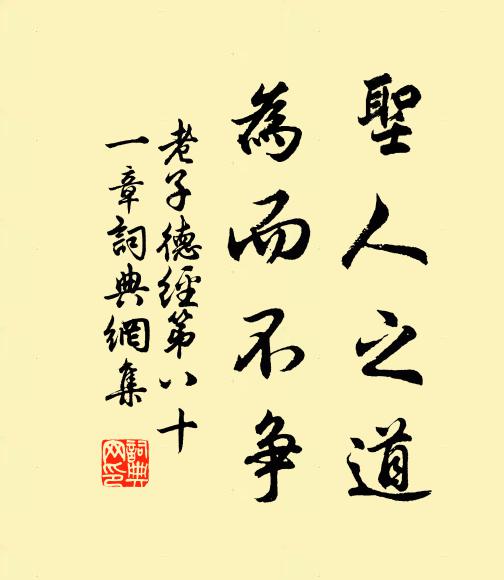 聖人之道
為而不争
老子德經第八十
一章詞典網集
詞典
网印